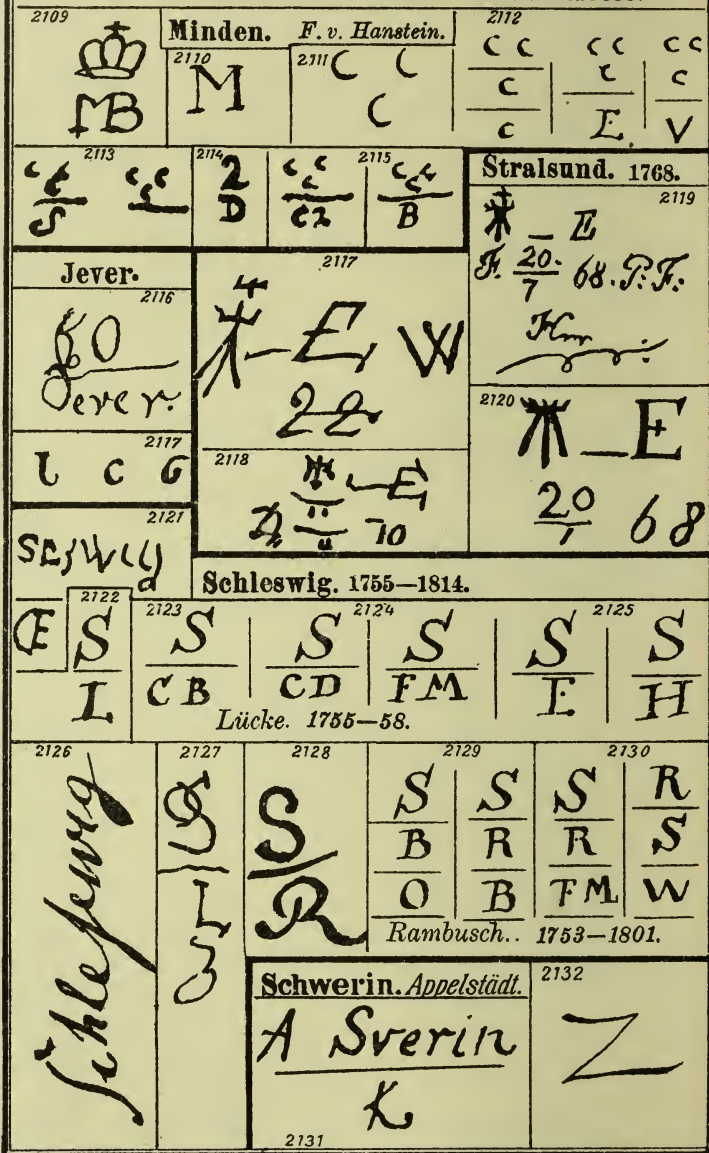 2109
MB
Minden. F. v. Hanstein.
2110
M
2111
C C
C
2112
C C
C
C
C C
C
E
C C
C
V
2113
2114
2
D
2115
B
Stralsund. 1768.
2119
E
F. 20. 68. P. F.
7
Jever.
2116
Jever.
2117
C G
2117
E W
22
2118
E
70
2120
E
20 68
2121
Schleswig. 1755—1814.
2122
S
L
2123
S
CB
2124
S
CD
S
FM
2125
S
E
S
H
Lücke. 1755—58.
2126
2127
S
L
3
2128
S
R
2129
S
B
O
S
R
B
2130
S
R
FM
R
S
W
Rambusch.. 1753—1801.
Schwerin. Appelstädt.
A Sverin
K
2131
2132
Z